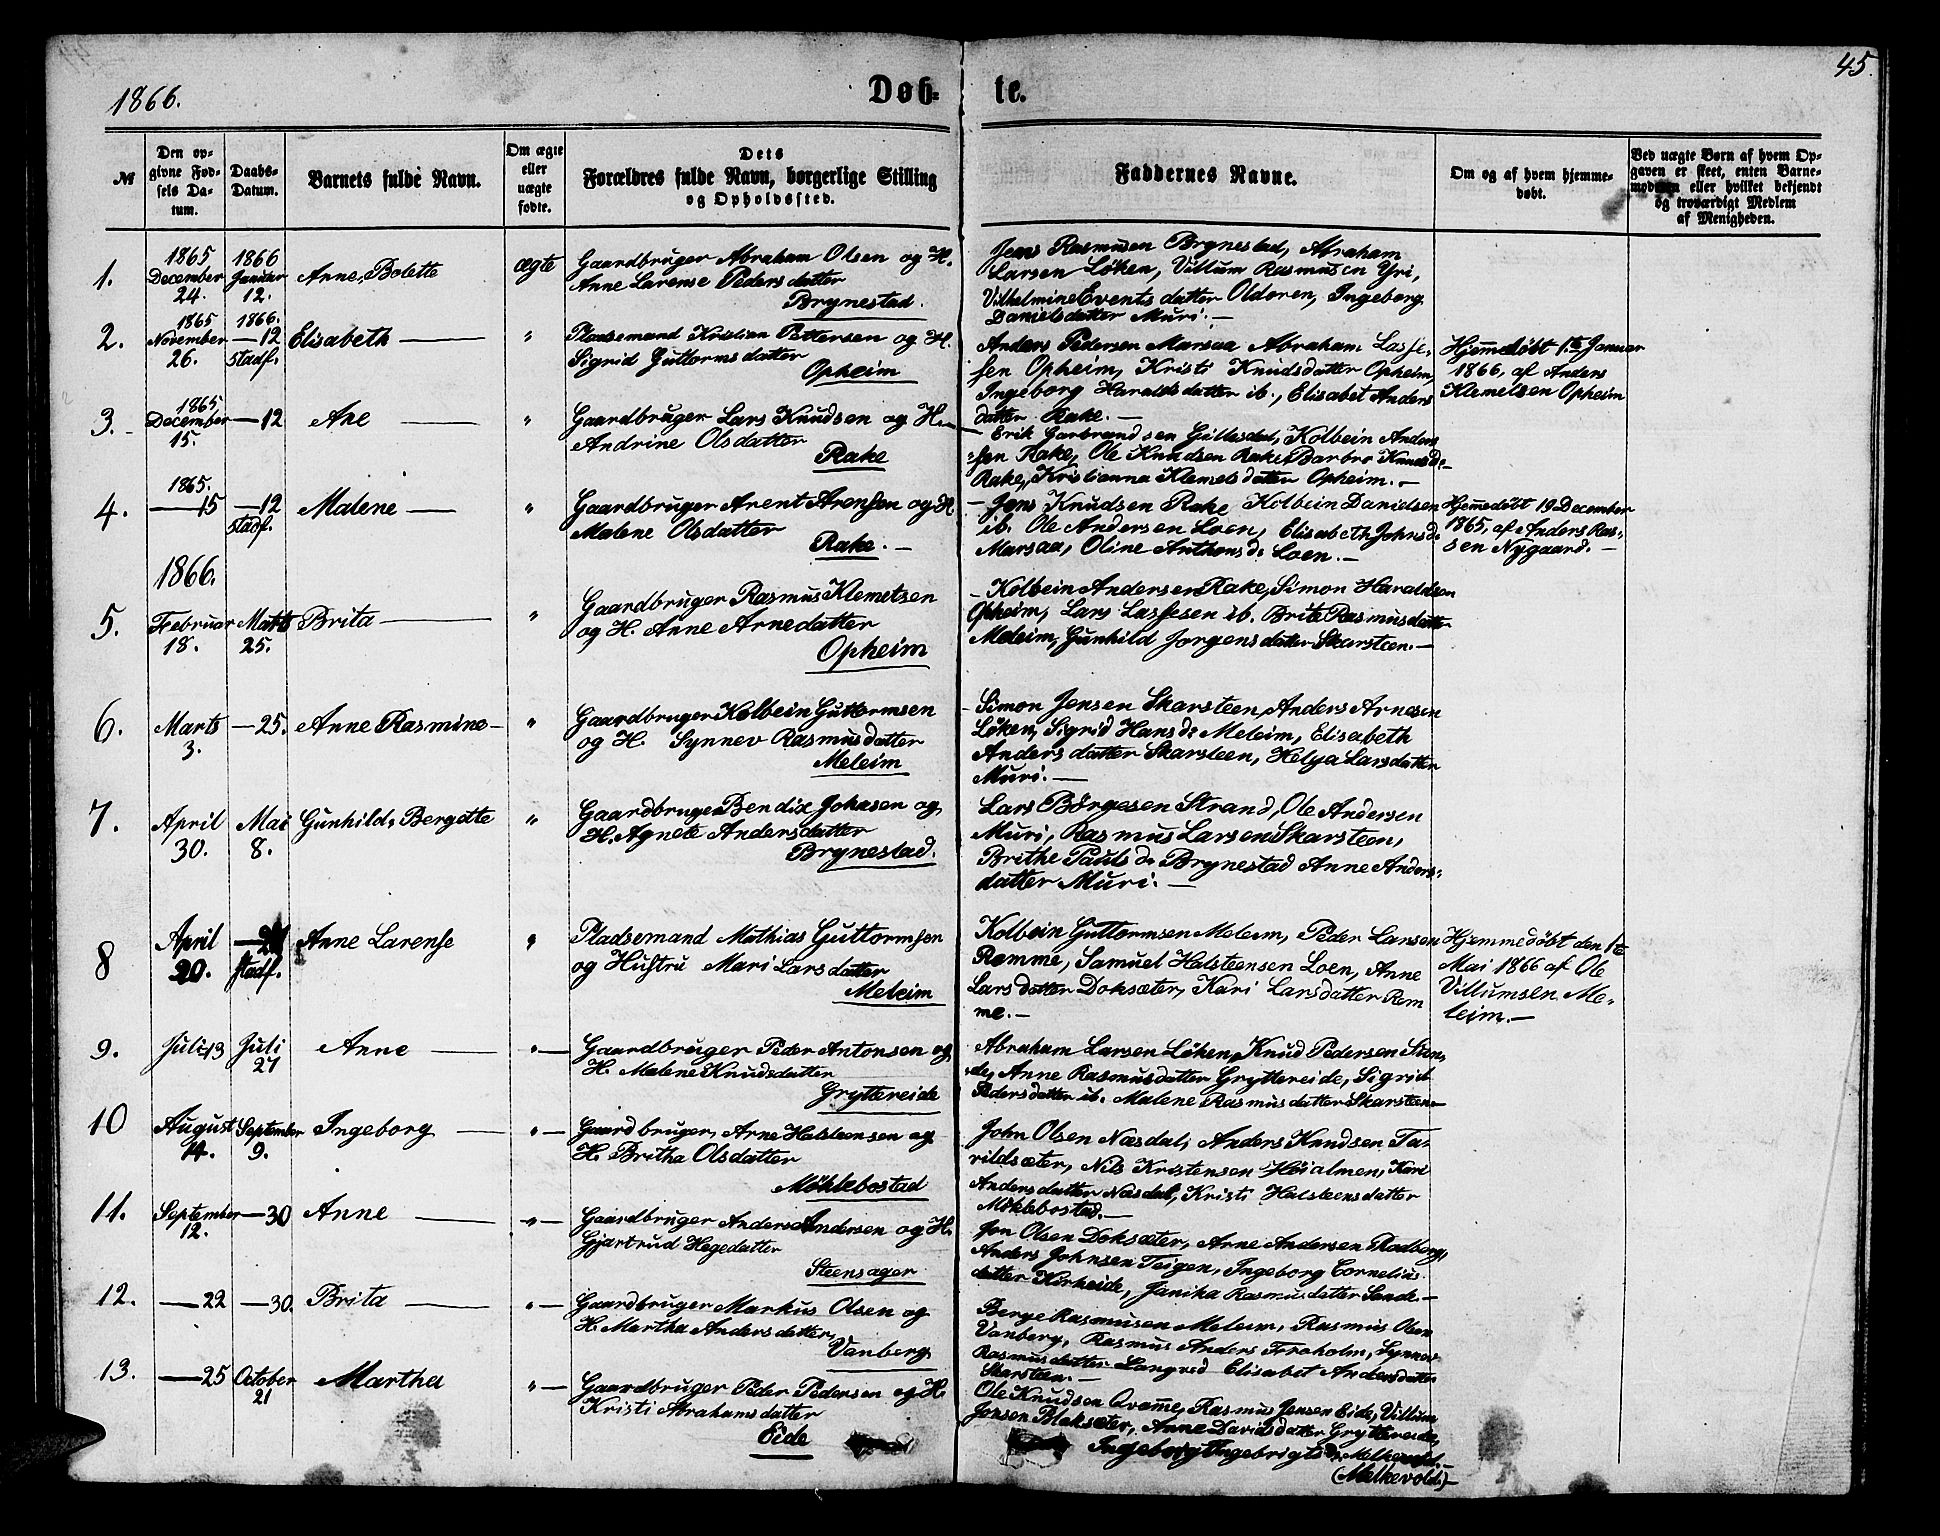 45.
1866.
Døb-
te.
№
Den op-
givne Fød-
sels Da-
tum.
Daabs-
Datum.
Barnets fulde Navn.
Om ægte
eller
uægte
fødte.
Dets
Forældres fulde Navn, borgerlige Stilling
og Opholdssted.
Faddernes Navne.
Om og af hvem hjemme-
døbt.
Ved uægte Børn af hvem Op-
gaven er skeet, enten Barne-
moderen eller hvilket bekjendt
og troværdigt Medlem
af Menigheden.
1.
1865
December
24.
1866
Januar
12.
Anne, Bolette
ægte
Gaardbruger Abraham Olsen og H.
Anne Larense Pedersdatter
Brynestad.
Jens Rasmusen Brynestad, Abraham
Larsen Løken, Villum Rasmusen Yri,
Vilhelmine Eventsdatter Oldoren, Ingeborg
Danielsdatter Muri.—
2.
1865
November
26.
1866.
—12
stadf.
Elisabeth —
"
Pladsemand Kristian Pettersen og H.
Sigrid Guttormsdatter
Opheim
Anders Pedersen Marsaa Abraham Lasse-
sen Opheim, Kristi Knudsdatter Opheim,
Ingeborg Haraldsdatter ib., Elisabet Anders
datter Rake.—
Hjemmedøbt 1.te Januar
1866, af Anders
Klemetsen Opheim
3.
1865
December
15.
—12
Ane —
"
Gaardbruger Lars Knudsen og H.
Andrine Olsdatter
Rake
— Erik Garbrandsen Gillesdal, Kolbein Anders
sen Rake, Ole Knudsen Rake, Barbro Knudsd.
Rake, Kristianna Klemetsdatter Opheim.—
4.
1865.
—15
—12
stadf.
Malene —
"
Gaardbruger Arent Arensen og H
Malene Olsdatter
Rake.—
— Jens Knudsen Rake Kolbein Danielsen
ib. Ole Andersen Loen, Elisabeth Johnsd.
Marsaa, Oline Anthonsd. Loen.—
Hjemmedøbt 19 December
1865, af Anders Ras-
sen Nygaard.—
5.
1866.
Februar
18.
Marts
25.
Brita —
"
Gaardbruger Rasmus Klemetsen
og H. Anne Arnedatter
Opheim
— Kolbein Andersen Rake, Simon Haraldsen
Opheim, Lars Lassesen ib. Brite Rasmusdatter
Meleim, Gunhild Jorgensdatter Skarsteen.—
6.
Marts
3.
—25.
Anne Rasmine—
"
Gaardbruger Kolbein Guttormsen
og H. Synnev Rasmusdatter
Meleim
— Simon Jensen Skarsteen, Anders Arnesen
Løken, Sigrid Hansd. Meleim, Elisabeth
Andersdatter Skarsteen, Helga Larsdatter
Muri.—
7.
April
30.
Mai
8.
Gunhild, Bergitte
"
Gaardbruger Bendix Johnsen og
H. Agnete Andersdatter
Brynestad.
Lars Børgesen Strand, Ole Andersen
Muri, Rasmus Larsen Skarsteen,
Brithe Paulsd. Brynestad Anne Anders-
datter Muri.—
8
April
20.
stadf.
Anne Larense
"
Pladsemand Mathias Guttormsen
og Hustru Mari Larsdatter
Meleim
Kolbein Guttormsen Meleim, Peder Larsen
Remme, Samuel Halsteensen Loen, Anne
Larsdatter Doksæter, Kari Larsdatter Rem
me.—
Hjemmedøbt den 1te
Mai 1866 af Ole
Villumsen Me-
leim.—
9.
Juli 13
Juli
21
Anne —
"—
Gaardbruger Peder Antonsen og
H. Malene Knudsdatter
Gryttereide
Abraham Larsen Løken, Knud Pedersen Sten-
de, Anne Rasmusdatter Gryttereide, Sigrid
Pedersdatter ib. Malene Rasmusdatter Skarsteen—
10
August
14.
September
9.
Ingeborg —
"—
Gaardbruger, Arne Halsteensen og
H. Britha Olsdatter
Møklebostad
John Olsen Næsdal, Anders Knudsen Ta-
rildsæter, Nils Kristensen Høialmen, Kari
Andersdatter Næsdal, Kristi Halsteensdatter
Møklebostad.—
11.
September
12.
—30
Anne —
"—
Gaardbruger Anders Andersen og H.
Gjartrud Hegedatter
Steensager
Jon Olsen Doksæter, Arne Andersen Rodberg,
Anders Johnsen Teigen, Ingeborg Cornelius
datter Kirkeide, Janika Rasmusdatter Sande.—
12.
—22
—30.
Brita —
"—
Gaardbruger Markus Olsen og
H. Martha Andersdatter
Vanberg
Berge Rasmusen Meleim, Rasmus Olsen
Vanberg, Rasmus Anders Froholm, Synnev
Rasmusdatter Langvid Elisabet Andersdatter
Skarsteen.—
13.
—25
October
21
Martha
"—
Gaardbruger Peder Pedersen og H.
Kristi Abrahamsdatter
Eide
Ole Knudsen Qvamme, Rasmus Jensen Eide, Villum
Jonsen Bleksæter, Anne Davidsdatter Gryttereide,
Ingeborg Ingebrigtsd. Melkevold.—
(Melkevold.)—